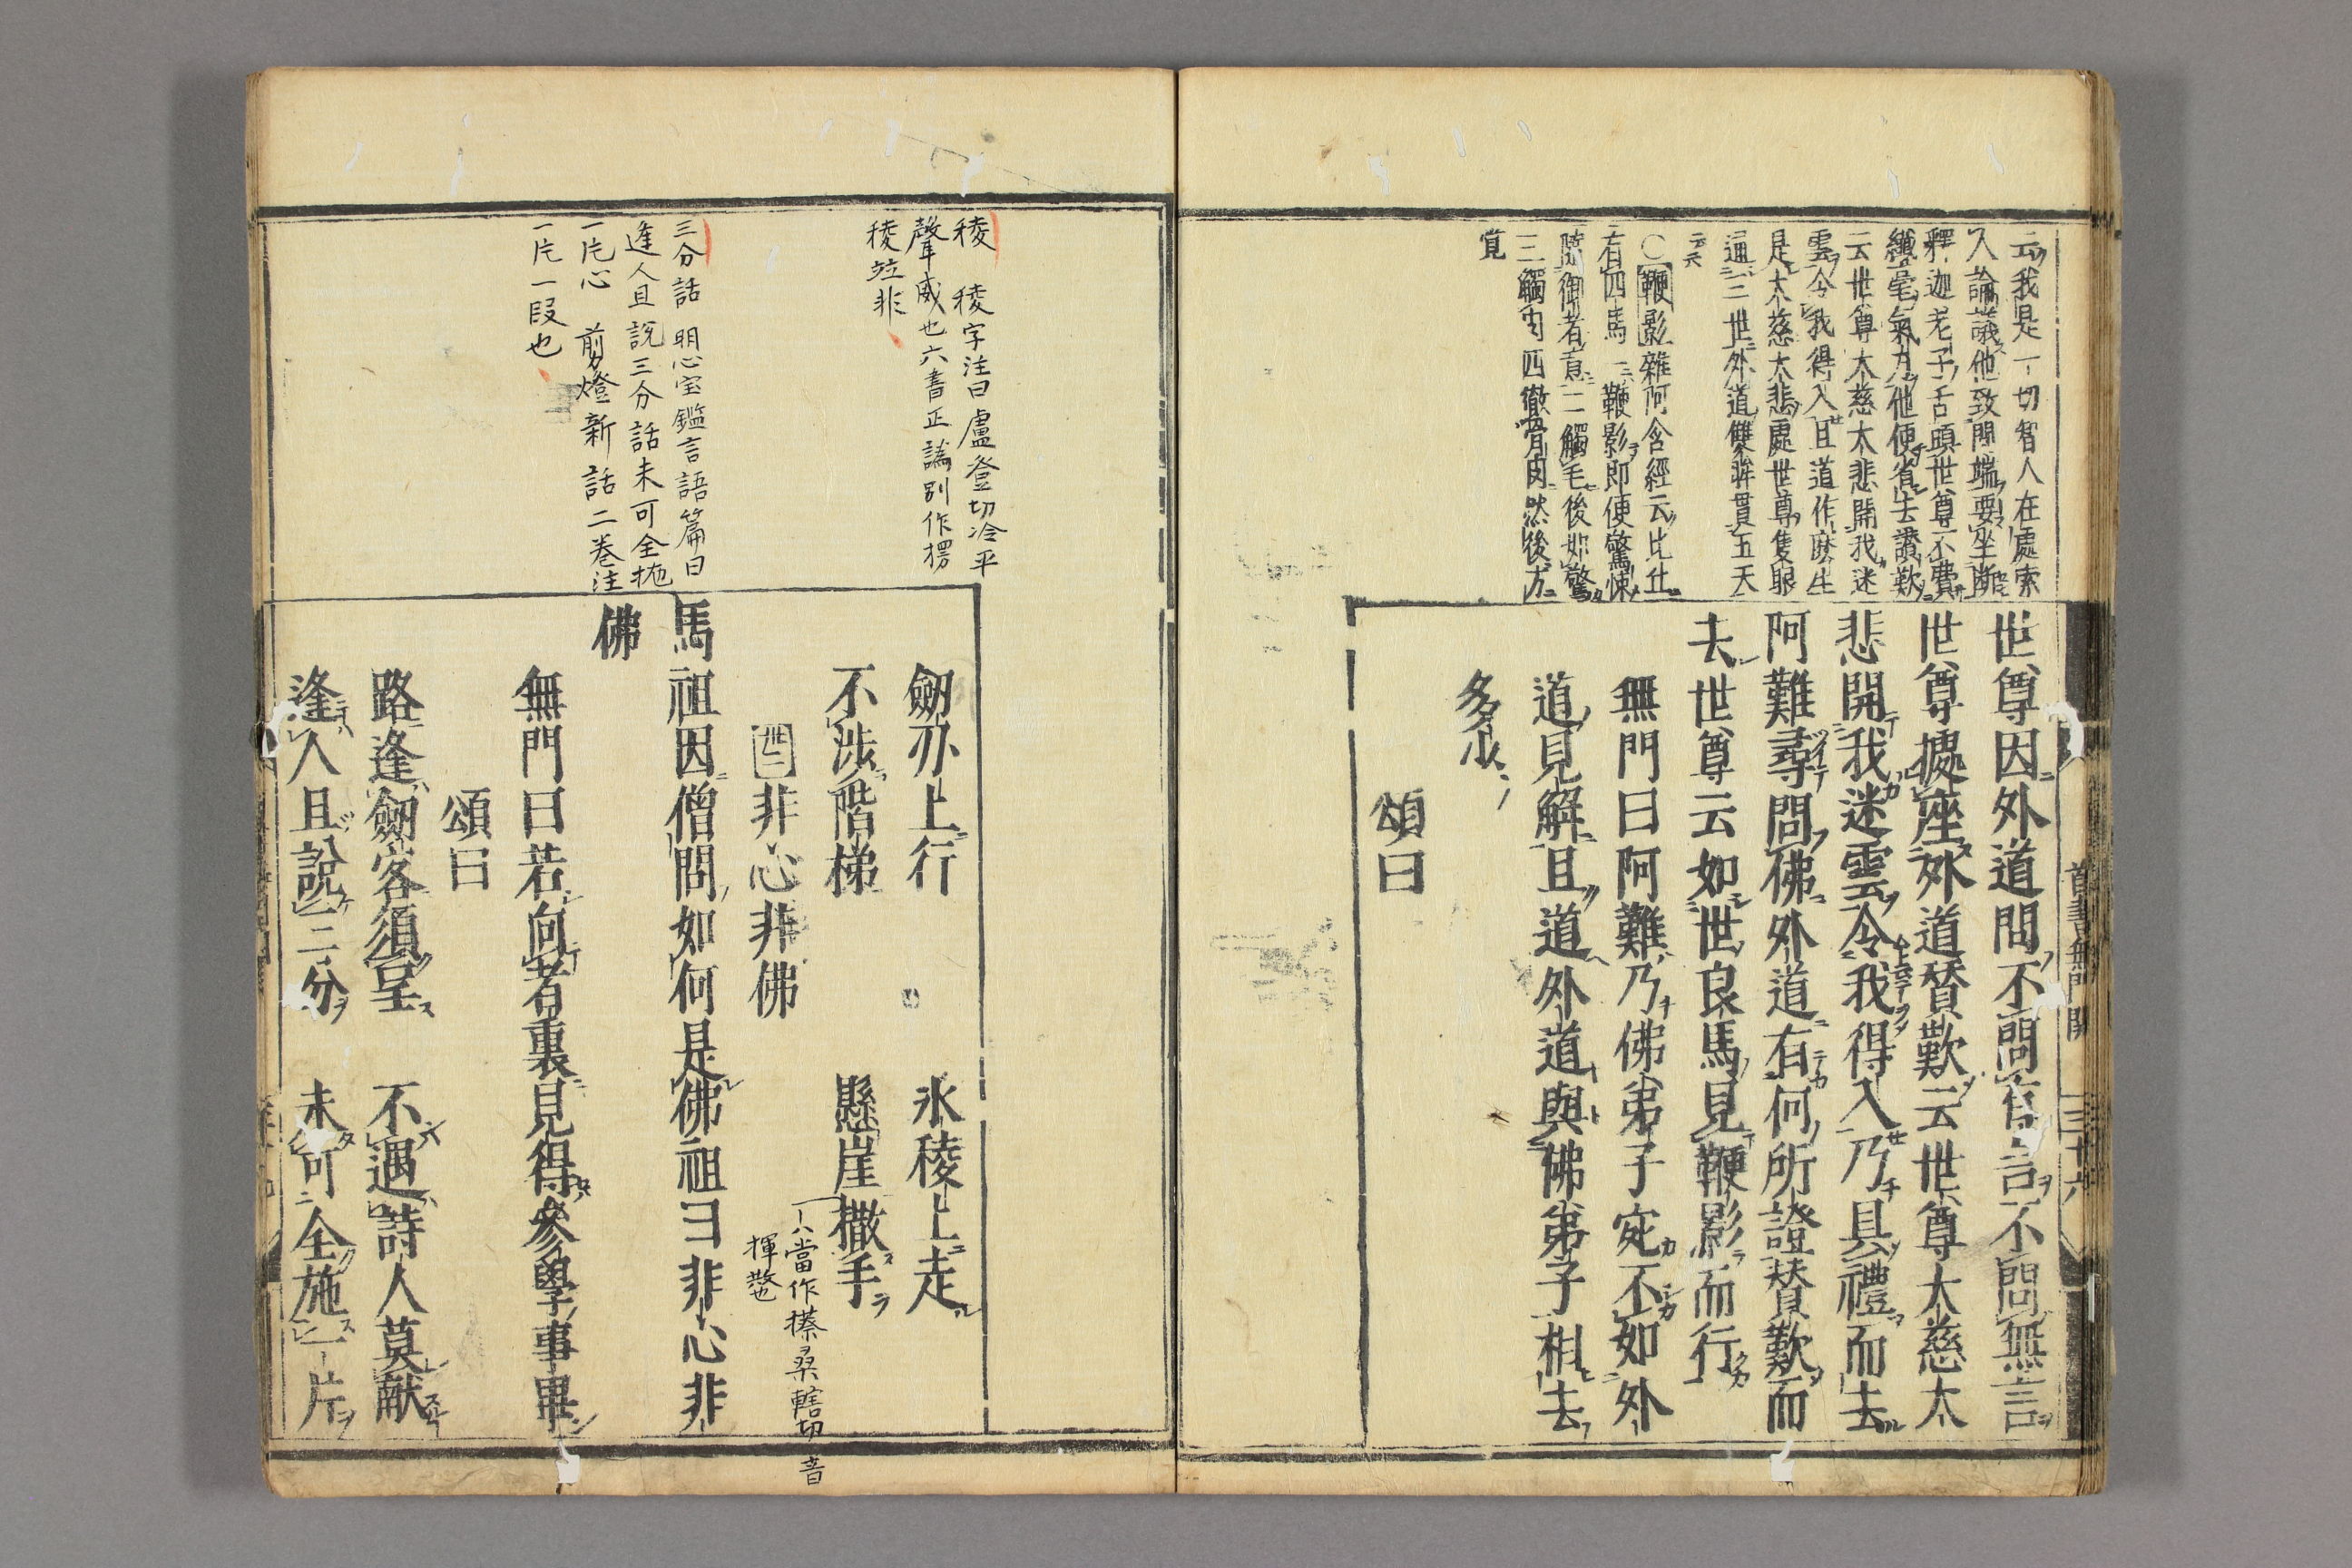 云我是一切智人在處索
人論議他致問端要坐斷
釋迦老子舌頭世尊不費
纖毫氣力他便省去讚歎
云世尊大慈大悲開我迷
雲令我得入且道作麼生
是大慈大悲處世尊隻眼
通三世外道雙眸貫五天
云云
〇鞭影雜阿含經云比丘
有四馬一鞭影即便驚悚
隨御者意二觸毛後妳驚
三觸肉四徹骨肉然後方
覚
世尊因外道問不問有言不問無言
世尊據座外道賛歎云世尊大慈大
悲開我迷雲令我得入乃具禮而去
阿難尋問佛外道有何所證賛歎而
去世尊云如世良馬見鞭影而行
無門曰阿難乃佛弟子宛不如外
道見解且道外道與佛弟子相去
多少
頌曰
首書無門關 三十六
稜 稜字注曰盧登切冷平
聲威也六書正譌別作楞
稜竝非
三分話 明心宝鑑言語篇曰
逢人且説三分話未可全抛
一片心 剪燈新話二巻注
一片一段也
劒刃上行 氷稜上走
不涉階梯 懸崖撒手
一ハ當作㩒桑轄切音
揮散也
卅三 非心非佛
馬祖因僧問如何是佛祖曰非心非
佛
無門曰若向者裏見得參學事畢
頌曰
路逢劒客須呈 不遇詩人莫献
逢人且說三分 未可全施一片